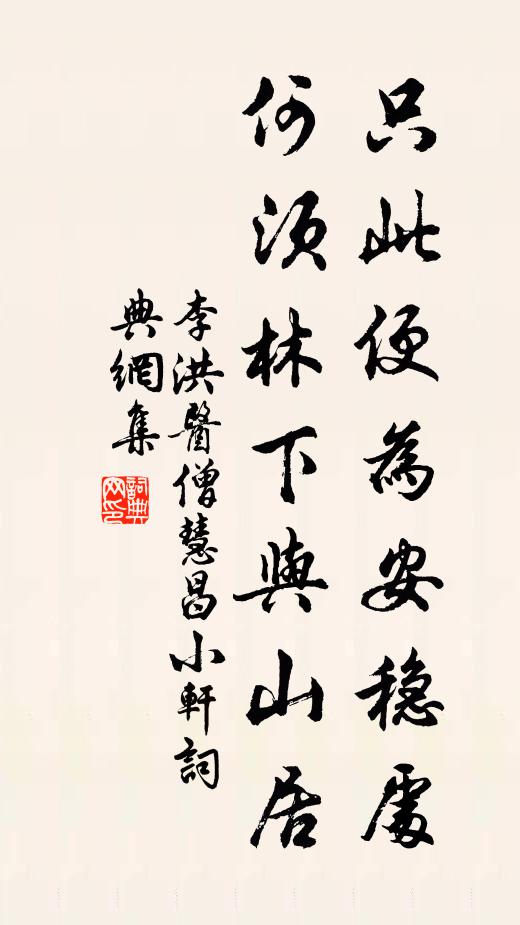 只此便為安穩處
何須林下與山居
李洪醫僧慧昌小軒詞
典網集
詞典
网印